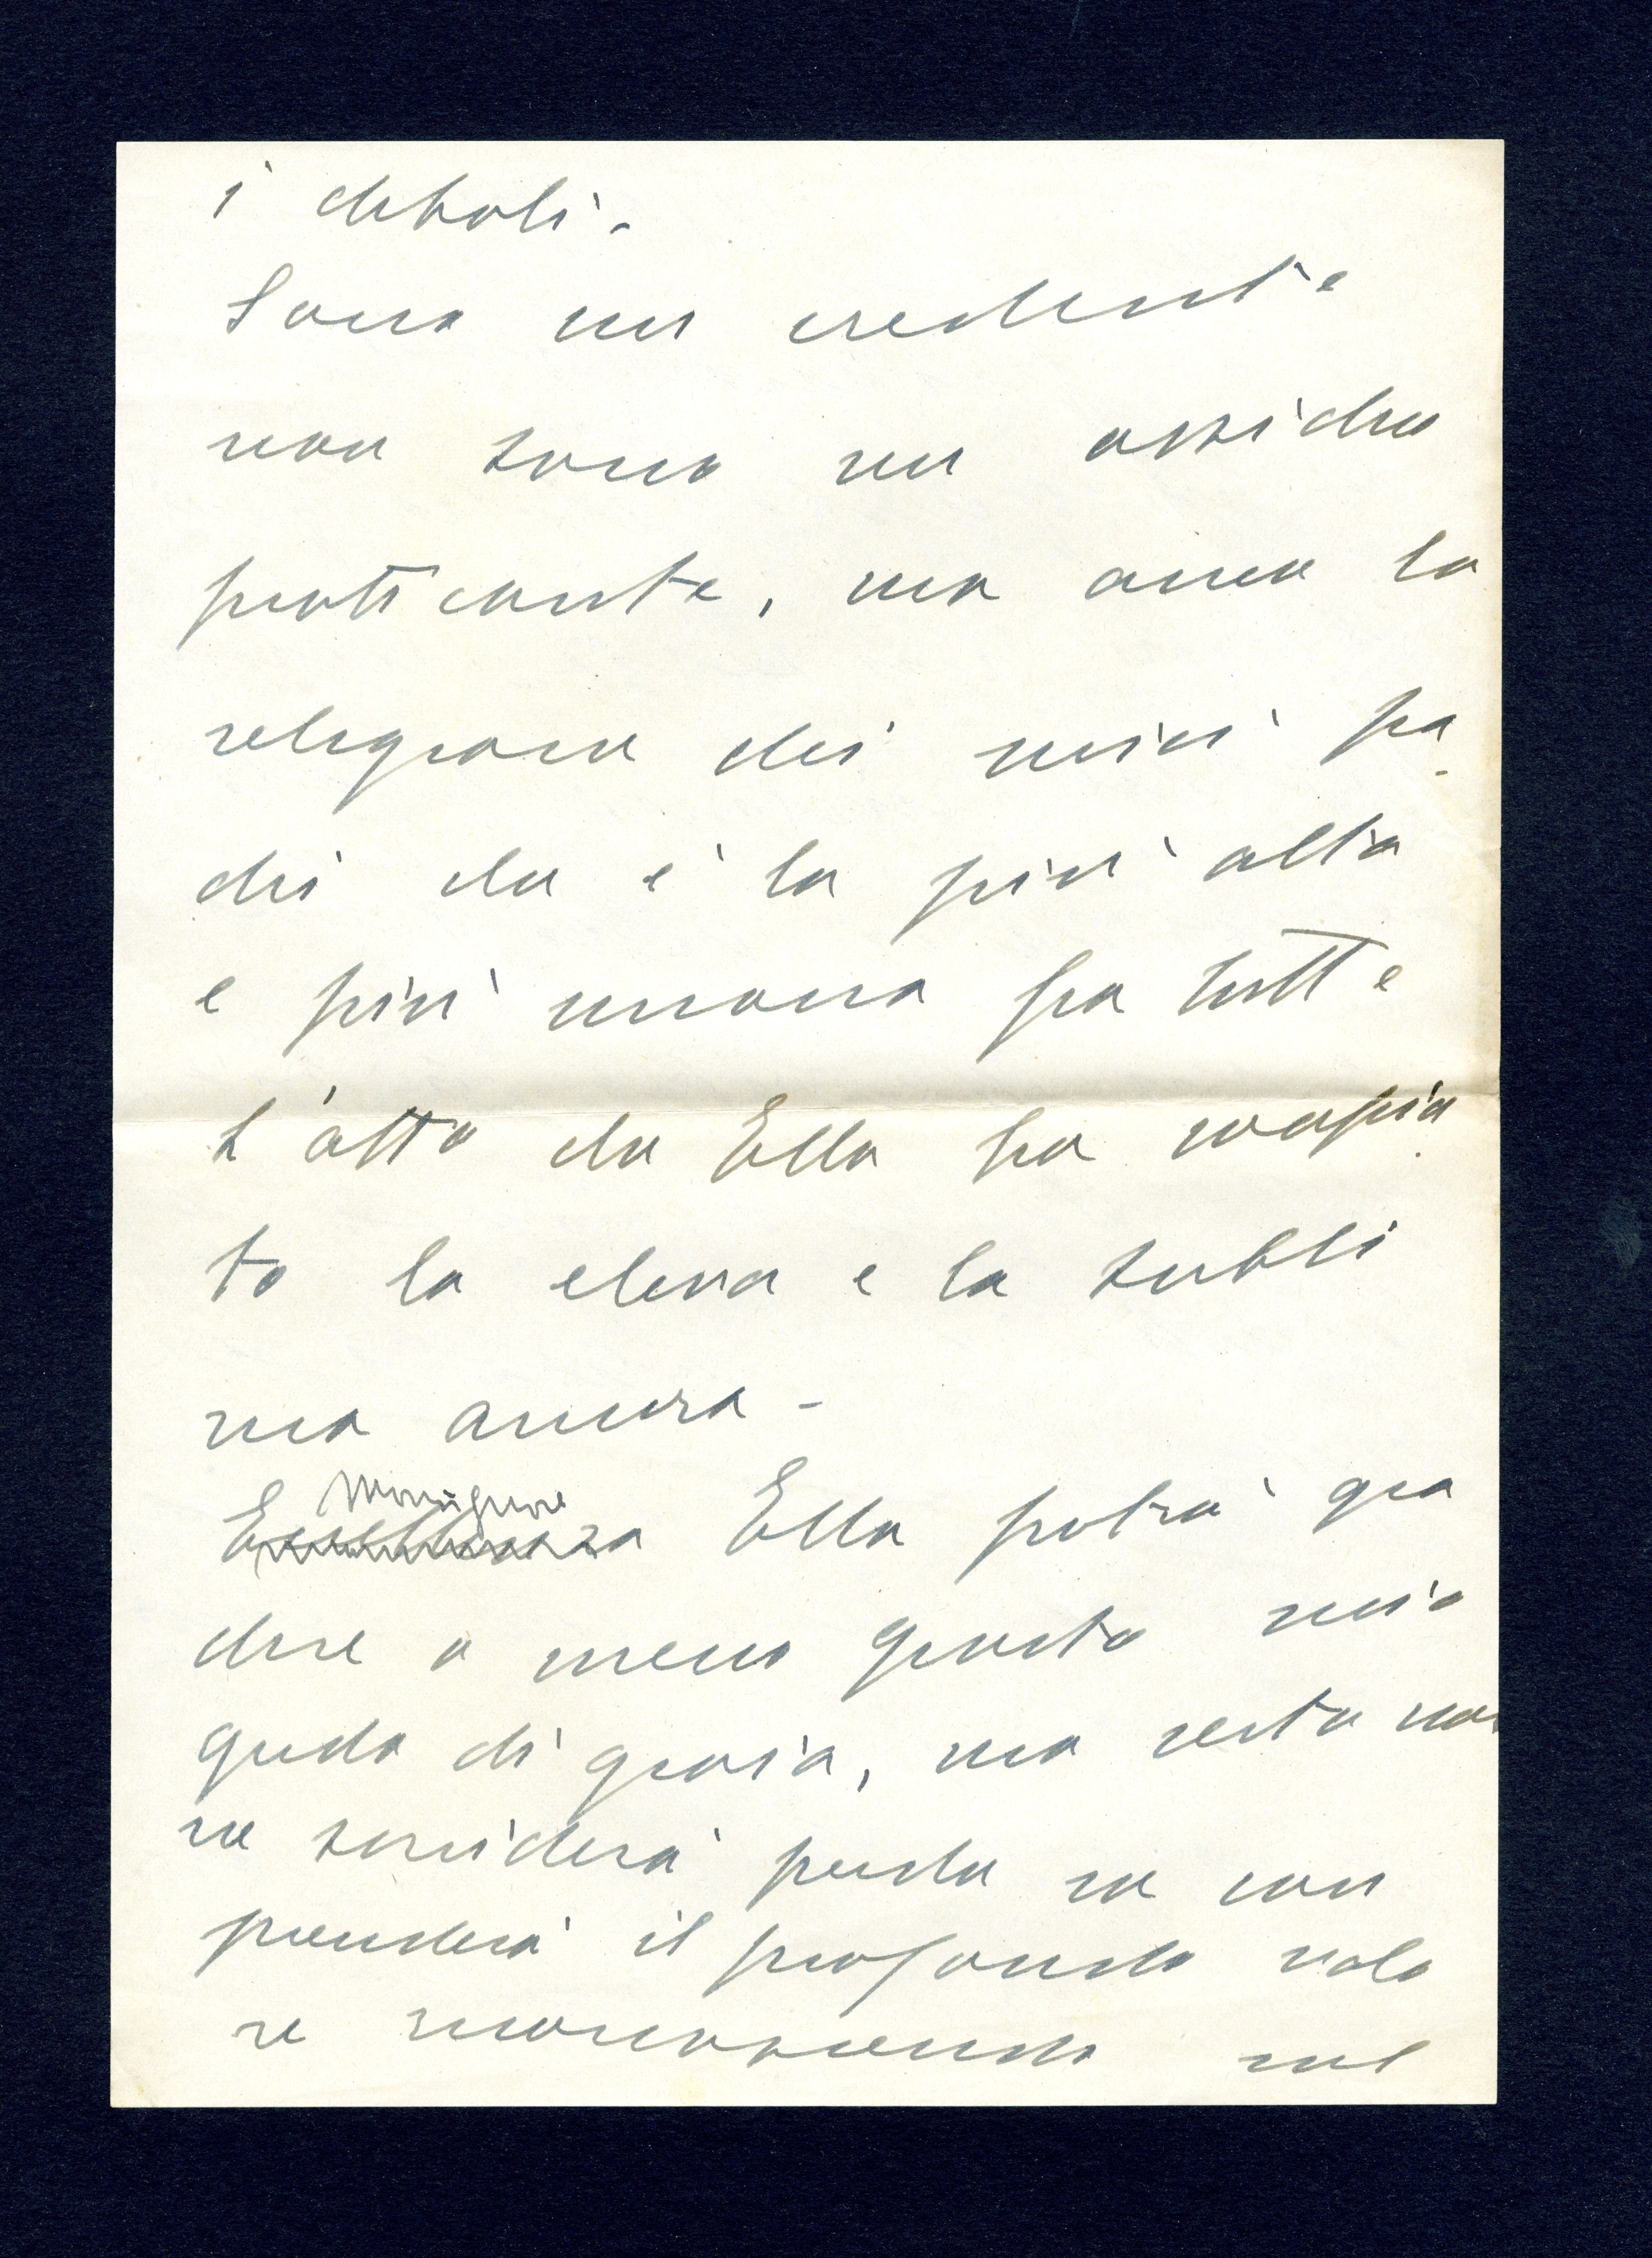 i deboli.
Sono un credente
non sono un assiduo
praticante, ma amo la
religione dei miei pa-
dri che è la più alta
e più umana fra tutte
L'atto che Ella ha compiu-
to la eleva e la subli
ma ancora -
Monsignore
Eccellenza Ella potrà gra
dire o meno questo mio
grido di gioia, ma certo non
ne sorriderà perché ne com
prenderà il profondo valo
re riconoscendo nel